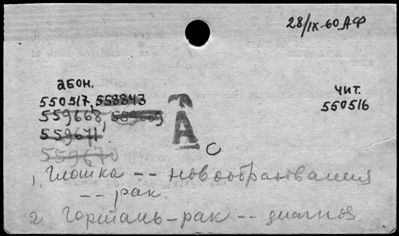 28/IX-60 АФ
абон.
550517, 558843
559668, 559669
559671
559670
чит.
550516
А
с
1. Глотка -- новообразования
-- рак.
2. Гортань-рак -- диагноз